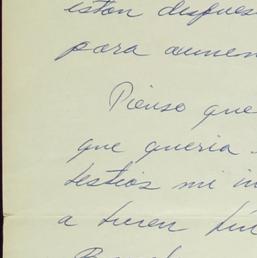 están dispues
para aumen
Pienso que
que quería
testios mi in
a buen tú